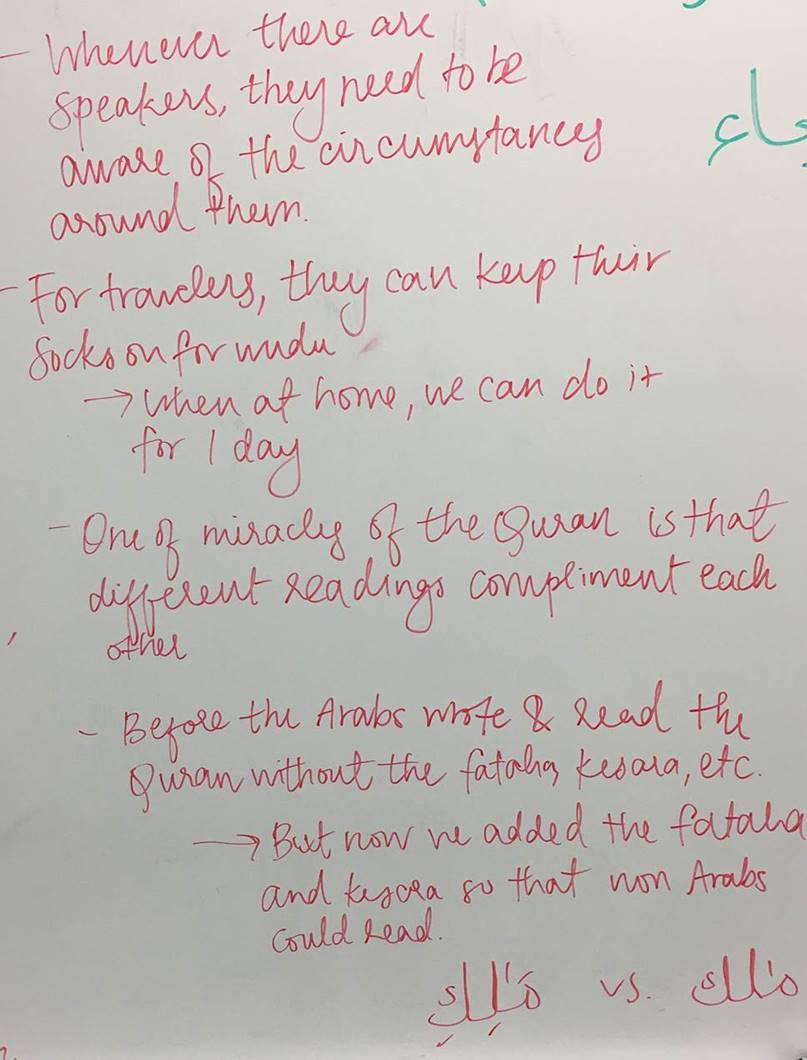 - Whenever there are
speakers, they need to be
aware of the circumstances
around them.
- For travelers, they can keep their
socks on for wudu
→ When at home, we can do it
for 1 day
- One of miracles of the Quran is that
different readings compliment each
other
- Before the Arabs wrote & read the
Quran without the fataha, kesara, etc.
→ But now we added the fataha
and kesara so that non Arabs
could read.
مَٰلِكِ vs. مٰلك